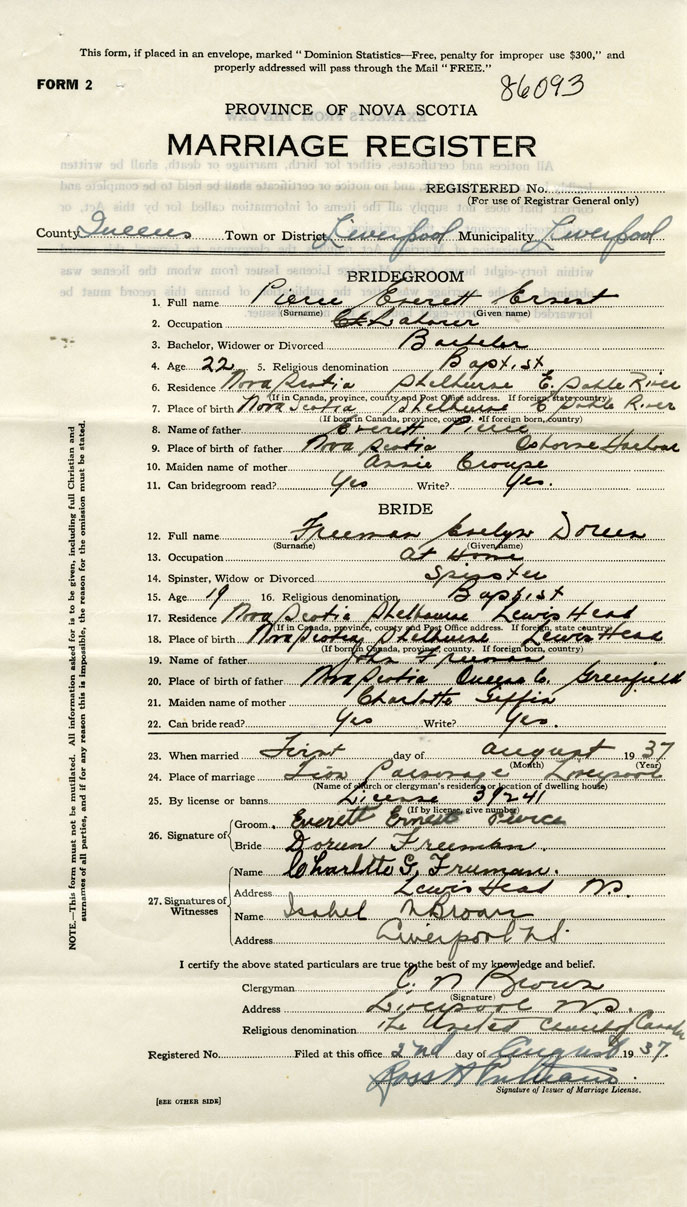 This form, if placed in an envelope, marked "Dominion Statistics—Free, penalty for improper use $300," and
properly addressed will pass through the Mail "FREE."
FORM 2
86093
PROVINCE OF NOVA SCOTIA
MARRIAGE REGISTER
REGISTERED No.
(For use of Registrar General only)
County Queens Town or District Liverpool Municipality Liverpool
BRIDEGROOM
1. Full name Pierce Everett Ernest
(Surname) (Given name)
2. Occupation Laborer
3. Bachelor, Widower or Divorced Bachelor
4. Age 22 5. Religious denomination Baptist
6. Residence Nova Scotia Shelburne E. Sable River
(If in Canada, province, county and Post Office address. If foreign, state country)
7. Place of birth Nova Scotia Shelburne E Sable River
(If born in Canada, province, county. If foreign born, country)
8. Name of father Everett Pierce
9. Place of birth of father Nova Scotia Osborne Harbour
10. Maiden name of mother Annie Croupe
11. Can bridegroom read? Yes Write? Yes.
BRIDE
12. Full name Freeman Evelyn Doreen
(Surname) (Given name)
13. Occupation At Home
14. Spinster, Widow or Divorced Spinster
15. Age 19 16. Religious denomination Baptist
17. Residence Nova Scotia Shelburne Lewis Head
(If in Canada, province, county and Post Office address. If foreign, state country)
18. Place of birth Nova Scotia Shelburne Lewis Head
(If born in Canada, province, county. If foreign born, country)
19. Name of father John Freeman
20. Place of birth of father Nova Scotia Queens Co. Greenfield
21. Maiden name of mother Charlotte Giffin
22. Can bride read? Yes Write? Yes.
23. When married First day of August 1937
(Month) (Year)
24. Place of marriage Zion Parsonage Liverpool
(Name of church or clergyman's residence or location of dwelling house)
25. By license or banns License 39241
(If by license, give number)
26. Signature of
Groom Everett Ernest Pierce
Bride Doreen Freeman.
27. Signatures of Witnesses
Name Charlotte G. Freeman.
Address Lewis Head N.S.
Name Isabel Brown
Address Liverpool N.S.
I certify the above stated particulars are true to the best of my knowledge and belief.
Clergyman C. N Brown
(Signature)
Address Liverpool N.S.
Religious denomination The United Church of Canada
Registered No. Filed at this office 2nd day of August 1937.
Ross A
Signature of Issuer of Marriage License.
[SEE OTHER SIDE]
NOTE.—This form must not be mutilated. All information asked for is to be given, including full Christian and
surnames of all parties, and if for any reason this is impossible, the reason for the omission must be stated.